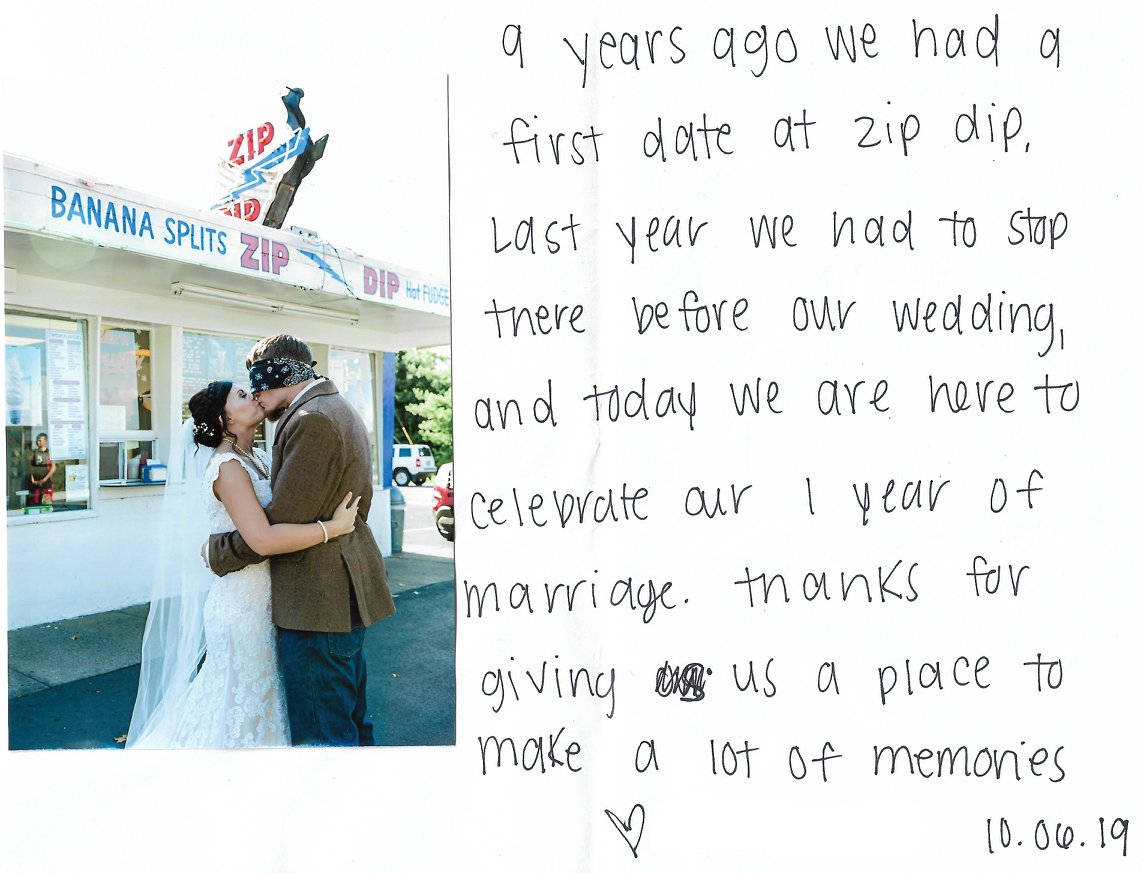 ZIP
DIP
BANANA SPLITS ZIP DIP Hot FUDGE
9 years ago we had a
first date at zip dip.
Last year we had to stop
there before our wedding,
and today we are here to
celebrate our 1 year of
marriage. thanks for
giving us a place to
make a lot of memories
10.06.19